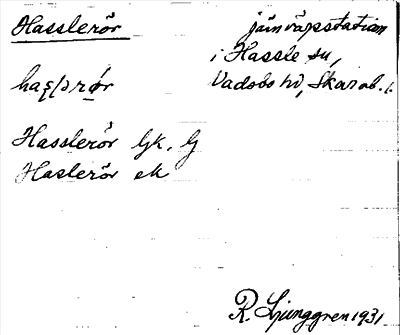 Hasslerör järnvägsstation
i Hassle sn,
Vadsbo hd, Skarab. l.
Hasslerör Gk. G
Haslerör ek
R. Ljunggren 1931